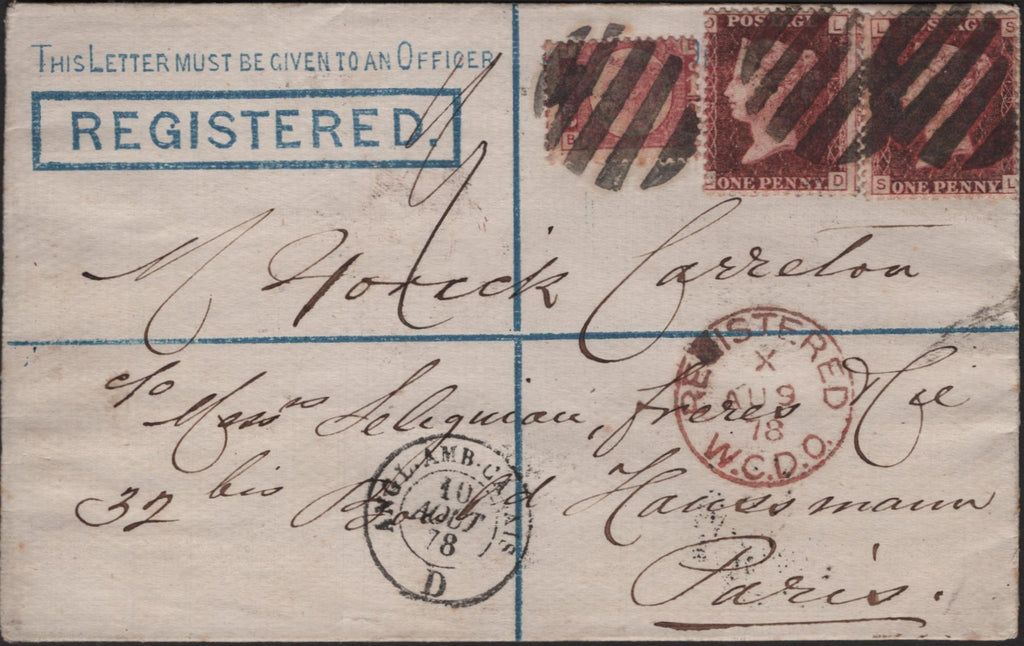 THIS LETTER MUST BE GIVEN TO AN OFFICER
REGISTERED.
POSTAGE
L
D L
L S
B
D
S L
ONE PENNY
ONE PENNY
M Yorick Carreton
REGISTERED
X
AU 9
78
W.C.D.O.
c/o Messrs Seligman, frères & Cie
32 bis Bould Haussmann
Paris.
ANGL. AMB. CALAIS
10
AOUT
78
D